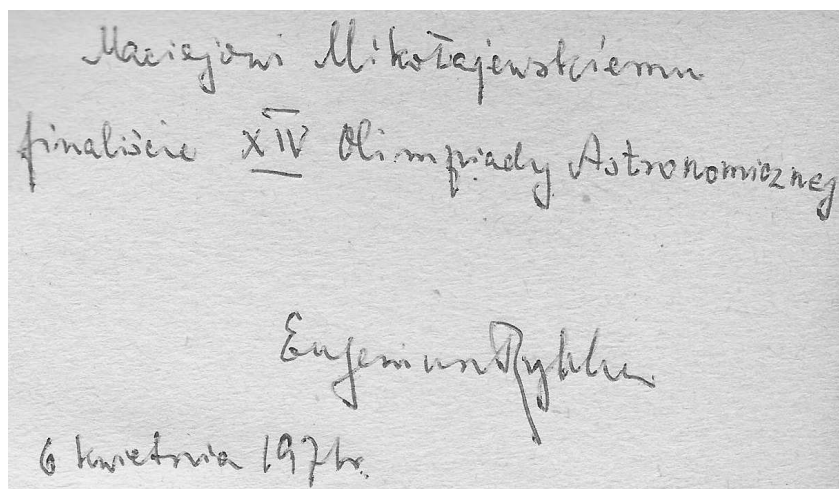 Maciejowi Mikołajewskiemu
finaliście XIV Olimpiady Astronomicznej
Eugeniusz Rybka
6 kwietnia 1971r.